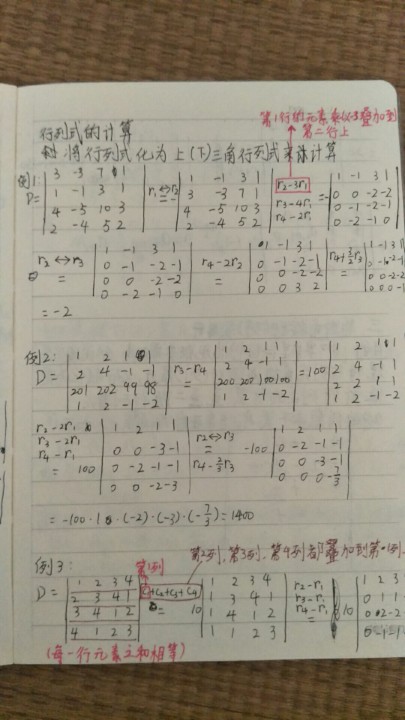 第1行的元素乘以-3叠加到
第二行上
行列式的计算
将行列式化为上(下)三角行列式来计算
例1:
D=
3 -3 7 1
1 -1 3 1
4 -5 10 3
2 -4 5 2
r₁↔r₂
=-
1 -1 3 1
3 -3 7 1
4 -5 10 3
2 -4 5 2
r₂-3r₁
r₃-4r₁
r₄-2r₁
=-
1 -1 3 1
0 0 -2 -2
0 -1 -2 -1
0 -2 -1 0
r₂↔r₃
=
1 -1 3 1
0 -1 -2 -1
0 0 -2 -2
0 -2 -1 0
r₄-2r₂
=
1 -1 3 1
0 -1 -2 -1
0 0 -2 -2
0 0 3 2
r₄+3/2r₃
=
1 -1 3 1
0 -1 -2 -1
0 0 -2 -2
0 0 0 -1
=-2
例2:
D=
1 2 1 1
2 4 -1 -1
201 202 99 98
1 2 -1 -2
r₃-r₄
=
1 2 1 1
2 4 -1 1
200 200 100 100
1 2 -1 -2
=100
1 2 1 1
2 4 -1 1
2 2 1 1
1 2 -1 -2
r₂-2r₁
r₃-2r₁
r₄-r₁
= 100
1 2 1 1
0 0 -3 -1
0 -2 -1 -1
0 0 -2 -3
r₂↔r₃
=
r₄-2/3r₃
-100
1 2 1 1
0 -2 -1 -1
0 0 -3 -1
0 0 0 -7/3
=-100·1·(-2)·(-3)·(-7/3)=1400
第2列、第3列、第4列都叠加到第1列
例3:
第1列
D=
1 2 3 4
2 3 4 1
3 4 1 2
4 1 2 3
C₁+C₂+C₃+C₄
= 10
1 2 3 4
1 3 4 1
1 4 1 2
1 1 2 3
r₂-r₁
r₃-r₁
r₄-r₁
=
10
1 2 3
0 1 1
0 2 -2
(每一行元素之和相等)